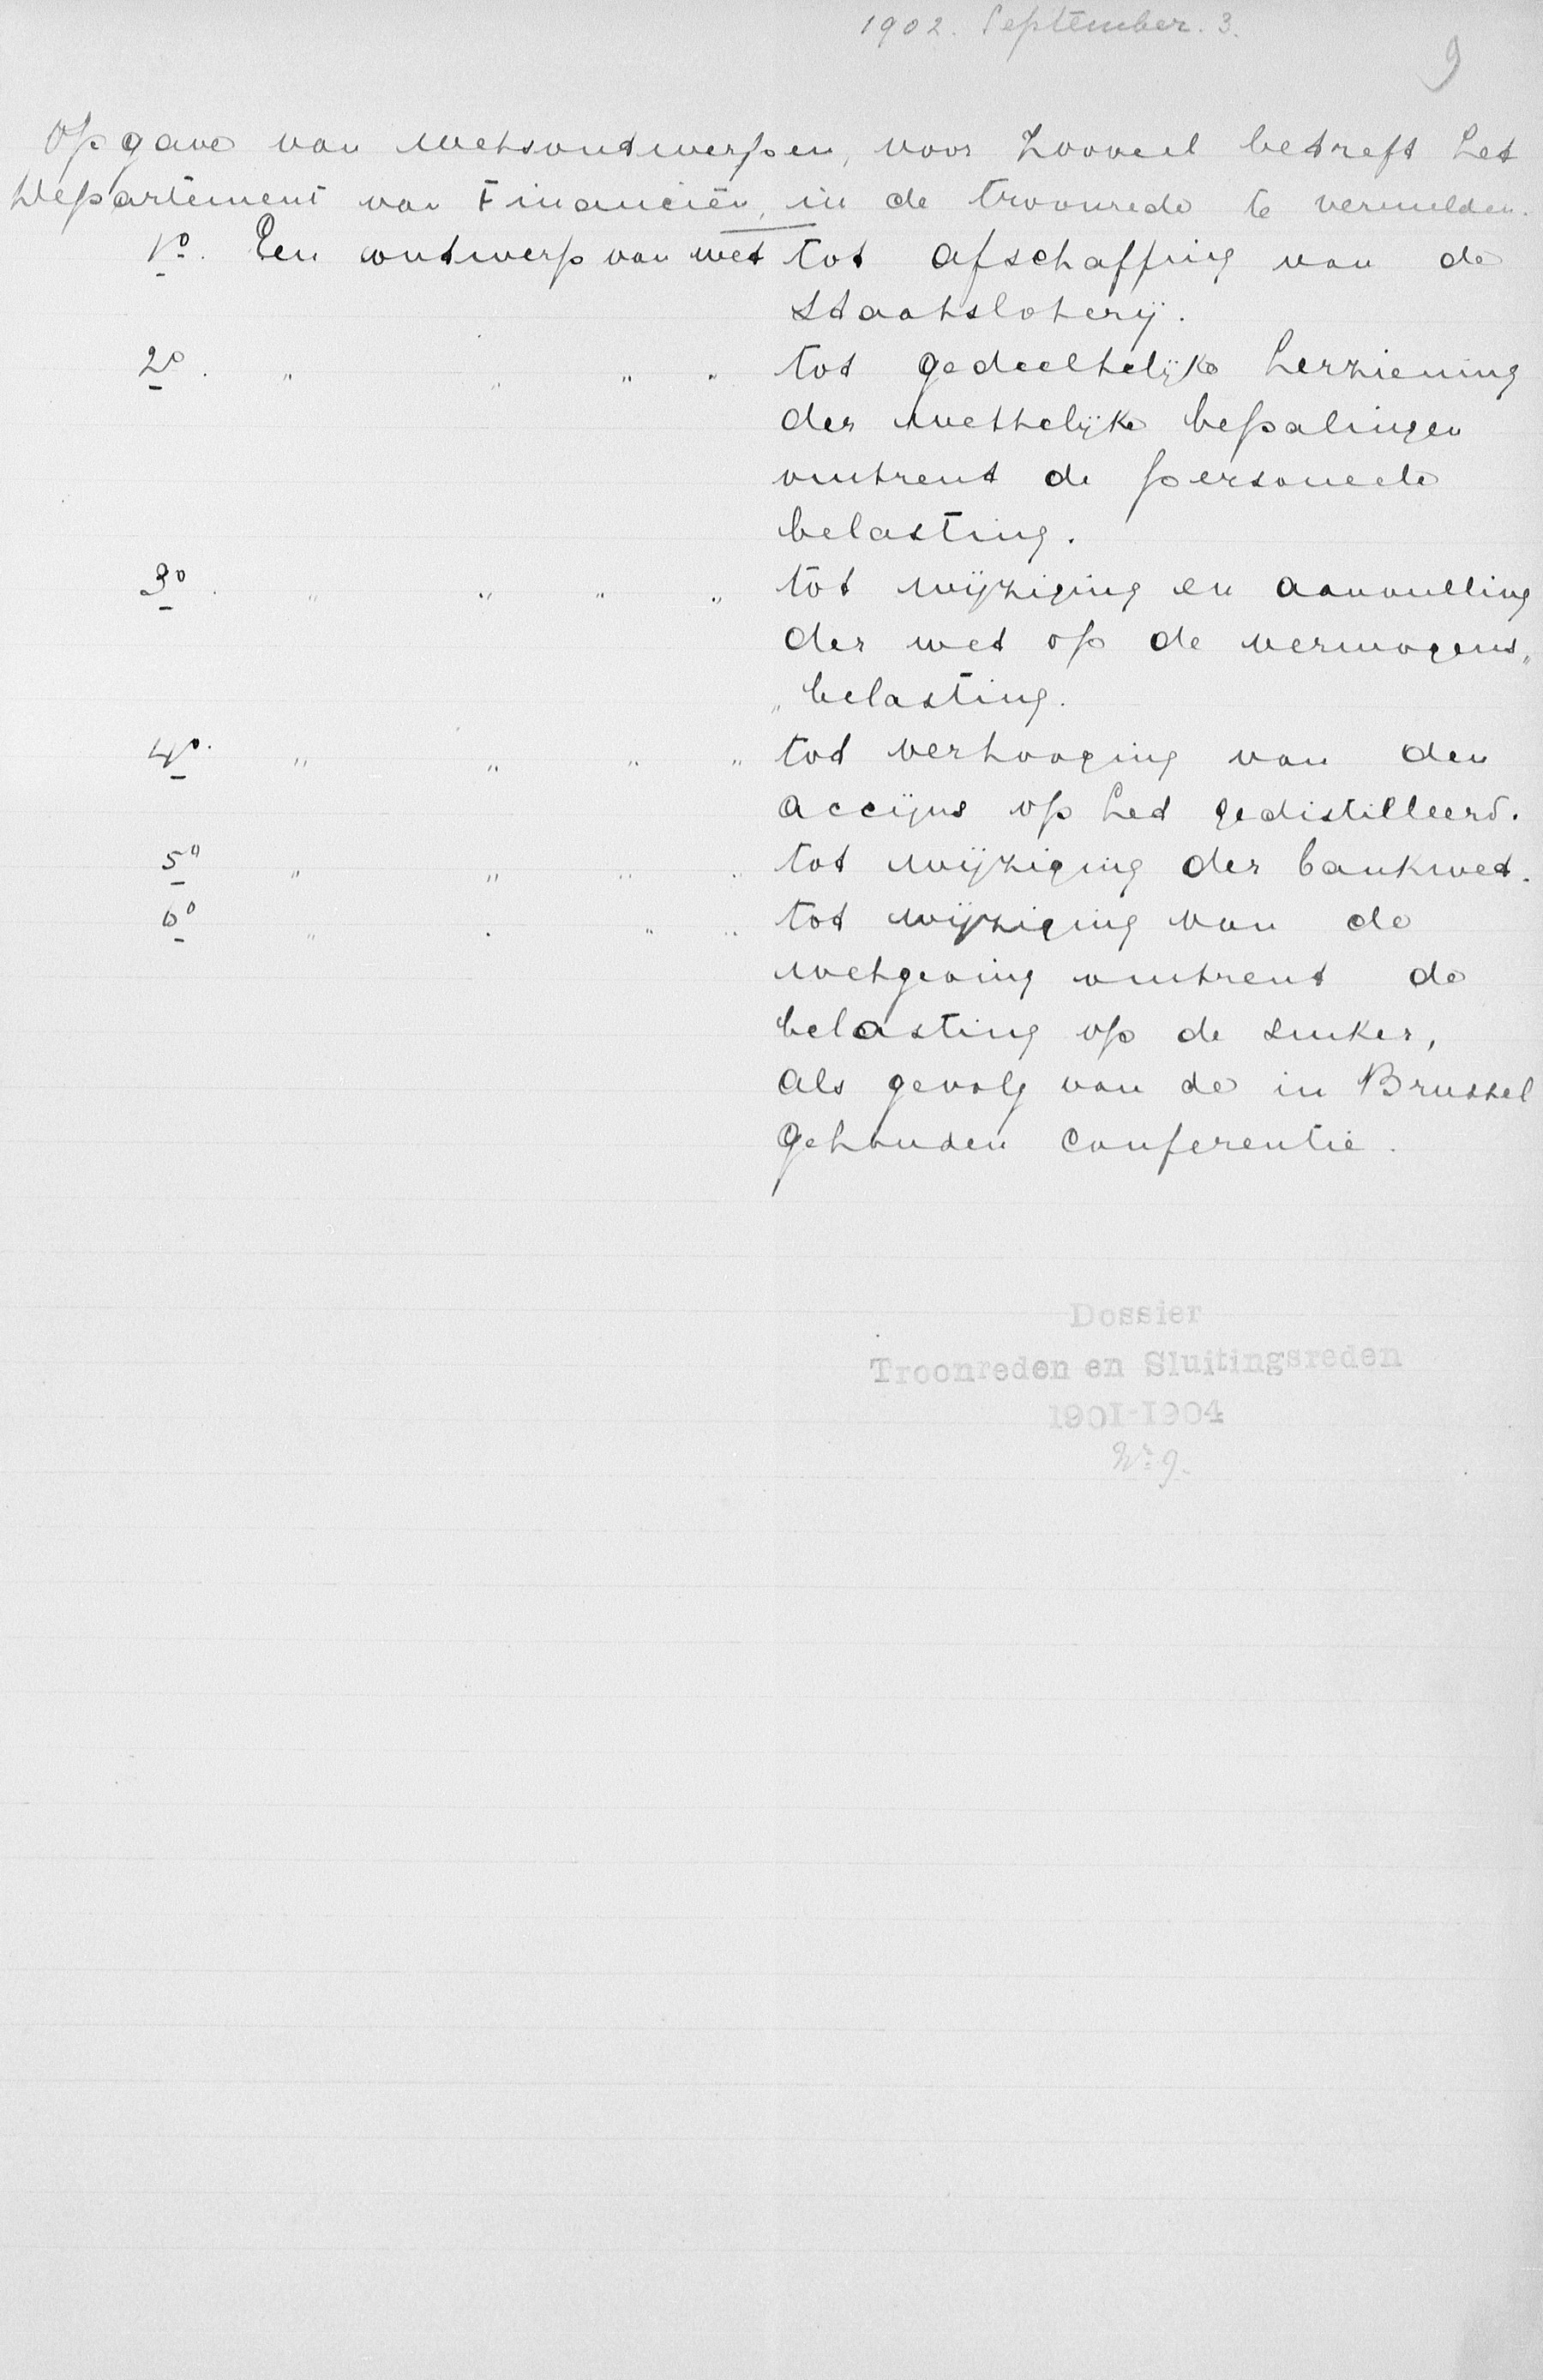 1902. September. 3.
9
Opgave van wetsontwerpen, voor zooveel betreft het
Departement van Financiën, in de troonrede te vermelden.
1º. Een ontwerp van wet tot afschaffing van de
Staatsloterij.
2º. " " " " tot gedeeltelijke herziening
der wettelijke bepalingen
omtrent de personeele
belasting.
3º. " " " " tot wijziging en aanvulling
der wet op de vermogens„
„belasting.
4º. " " " " tot verhooging van den
accijns op het gedistilleerd.
5º " " " " tot wijziging der bankwet.
6º " " " " tot wijziging van de
wetgeving omtrent de
belasting op de suiker,
als gevolg van de in Brussel
gehouden conferentie.
Dossier
Troonreden en Sluitingsreden
1901-1904
Nº 9.